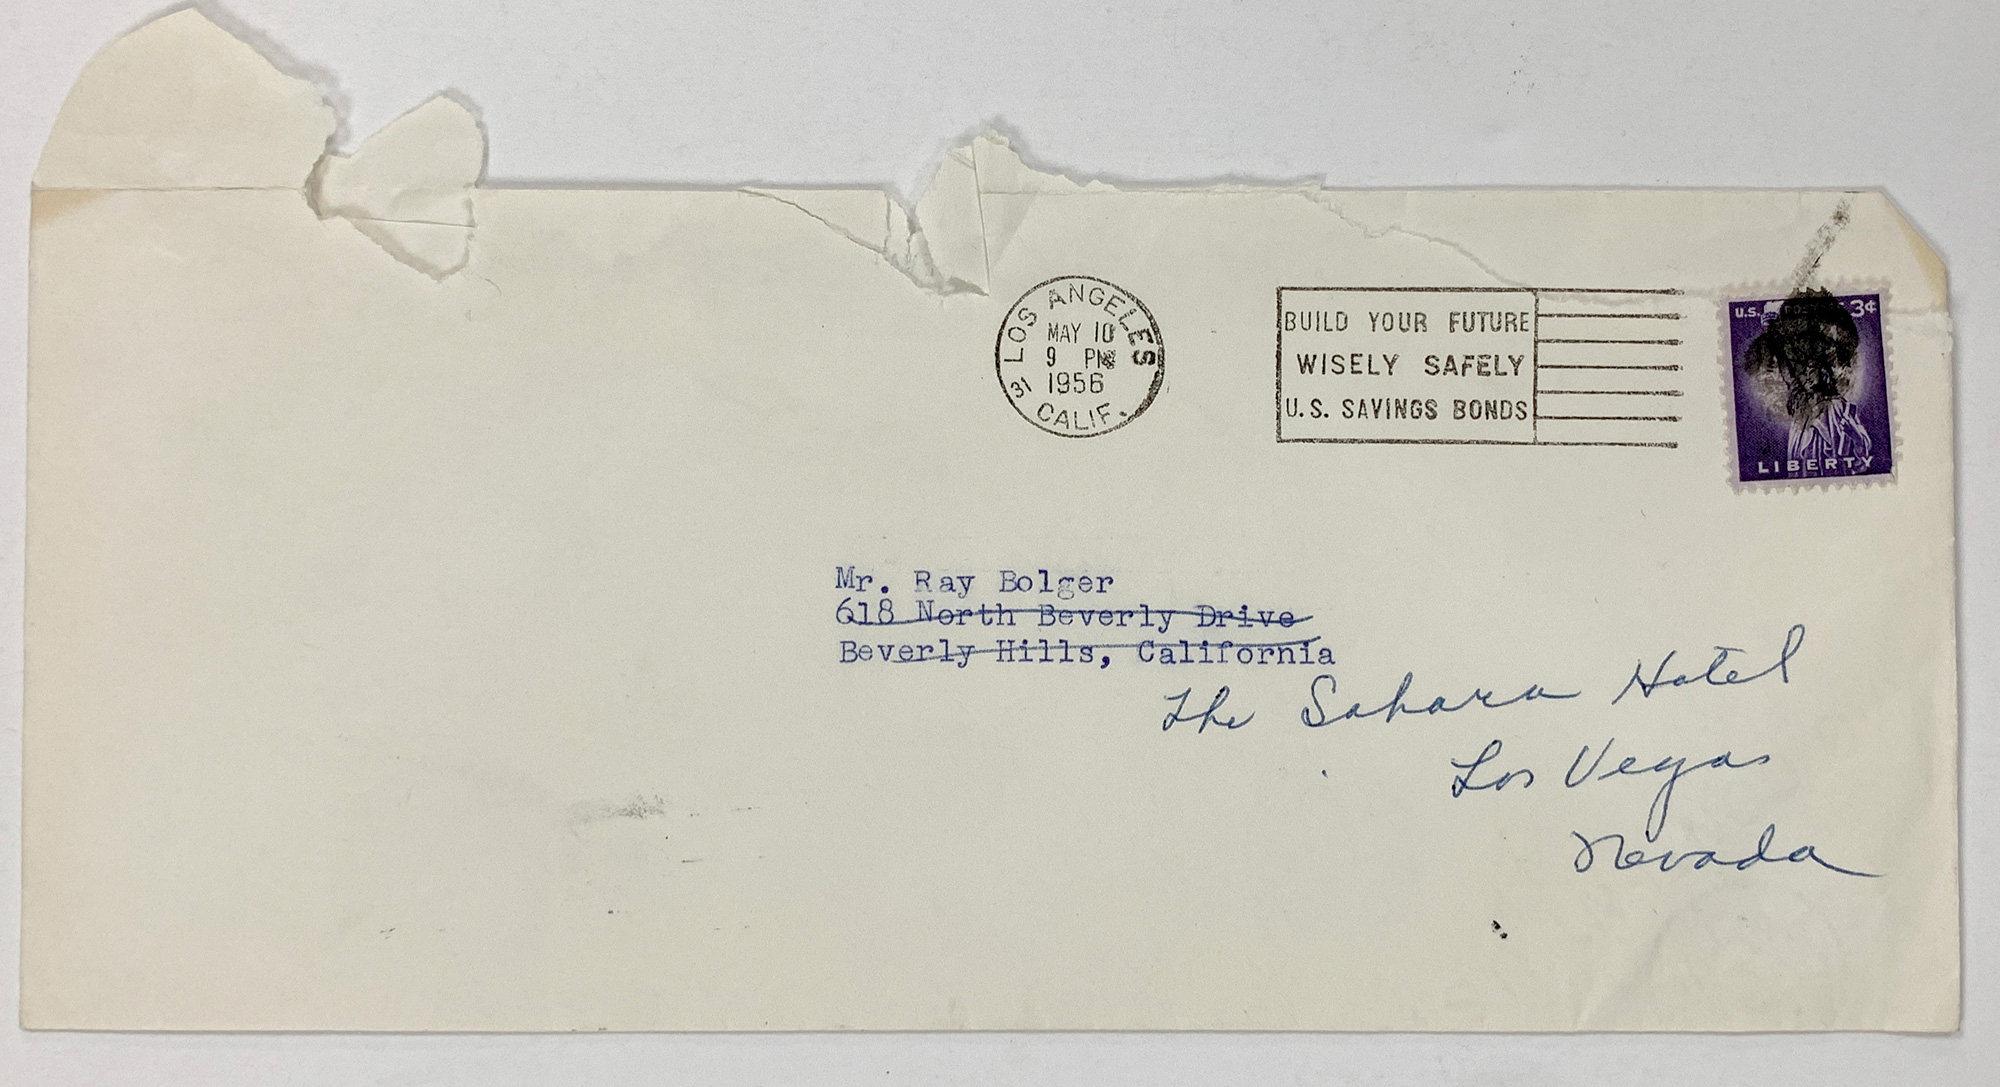 LOS ANGELES
MAY 10
9 PM
1956
31 CALIF.
BUILD YOUR FUTURE
WISELY SAFELY
U.S. SAVINGS BONDS
U.S. 3¢
LIBERTY
Mr. Ray Bolger
618 North Beverly Drive
Beverly Hills, California
The Sahara Hotel
Las Vegas
Nevada